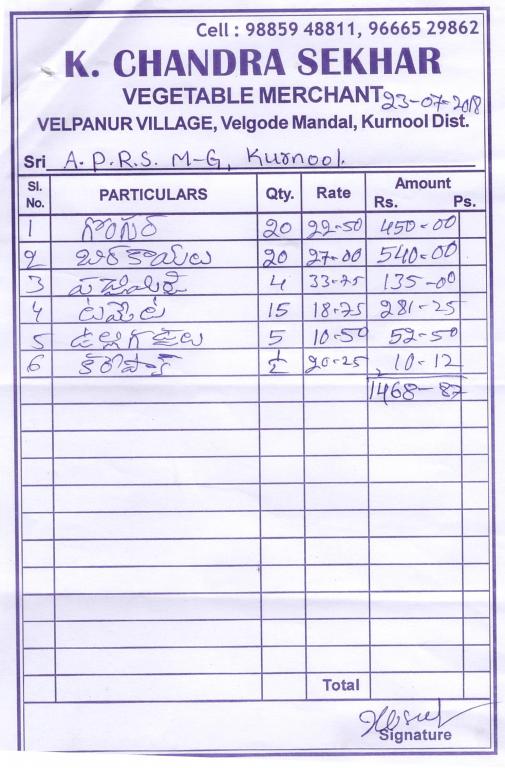 Cell : 98859 48811, 96665 29862
K. CHANDRA SEKHAR
VEGETABLE MERCHANT 23-07-2018
VELPANUR VILLAGE, Velgode Mandal, Kurnool Dist.
Sri A.P.R.S. M-G, Kurnool.
Sl. No. PARTICULARS Qty. Rate Amount Rs. Ps.
1 గోంగుర 20 22-50 450-00
2 బీరకాయలు 20 27-00 540-00
3 4 33-75 135-00
4 టమోట 15 18-75 281-25
5 ఉల్లిగడ్డలు 5 10-50 52-50
6 ½ 20-25 10-12
1468-87
Total
Signature